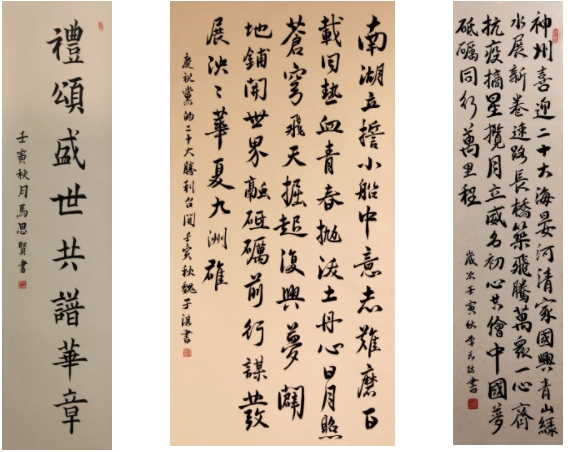 禮頌盛世共譜華章
壬寅秋月馬思賢書
南湖立誓小船中意志難磨百
載同熱血青春拋沃土丹心日月照
蒼穹飛天掘起復興夢闢
地鋪開世界融砥礪前行謀發
展泱々華夏九洲雄
慶祝黨的二十大勝利召開壬寅秋魏子淇書
神州喜迎二十大海晏河清家國興青山綠
水展新卷速路長橋築飛騰萬眾一心齊
抗疫摘星攬月立威名初心共繪中國夢
砥礪同行萬里程
歲次壬寅秋李書